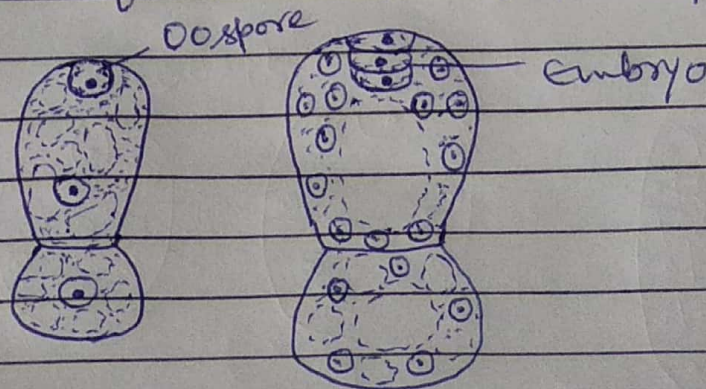 Oospore
Embryo